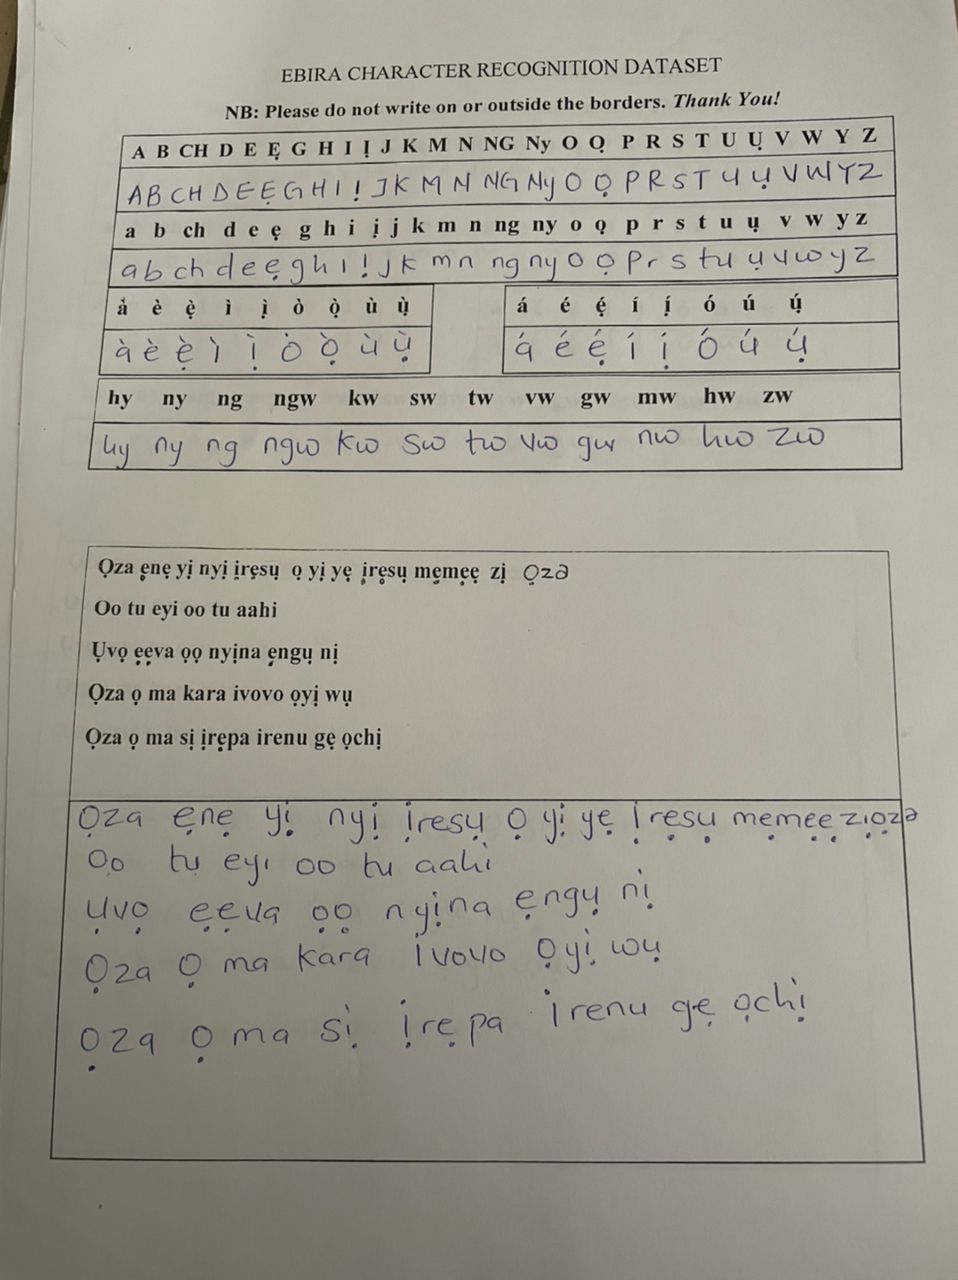 EBIRA CHARACTER RECOGNITION DATASET
NB: Please do not write on or outside the borders. Thank You!
A B CH D E Ẹ G H I Ị J K M N NG Ny O Ọ P R S T U Ụ V W Y Z
A B CH D E Ẹ G H I Ị J K M N NG Ny O Ọ P R S T U Ụ V W Y Z
a b ch d e ẹ g h i ị j k m n ng ny o ọ p r s t u ụ v w y z
a b ch d e ẹ g h i ị j k m n ng ny o ọ p r s t u ụ v w y z
à è ẹ̀ ì ị̀ ò ọ̀ ù ụ̀ á é ẹ́ í ị́ ó ú ụ́
à è ẹ̀ ì ị̀ ò ọ̀ ù ụ̀ á é ẹ́ í ị́ ó ú ụ́
hy ny ng ngw kw sw tw vw gw mw hw zw
hy ny ng ngw kw sw tw vw gw nw hw zw
Ọza ẹnẹ yị nyị ịrẹsụ ọ yị yẹ ịrẹsụ mẹmẹẹ zị ọza
Oo tu eyi oo tu aahi
Ụvọ ẹẹva ọọ nyịna ẹngụ nị
Ọza ọ ma kara ivovo ọyị wụ
Ọza ọ ma sị ịrẹpa irenu gẹ ọchị
Ọza ẹnẹ yị nyị ịresụ Ọ yị yẹ ịrẹsụ mẹmẹẹ zịọza
Oo tu eyi oo tu aahi
Ụvọ ẹẹva ọọ nyịna ẹngụ nị
Ọza Ọ ma kara ivovo Ọyị wụ
Ọza Ọ ma sị ịrẹpa irenu gẹ ọchị